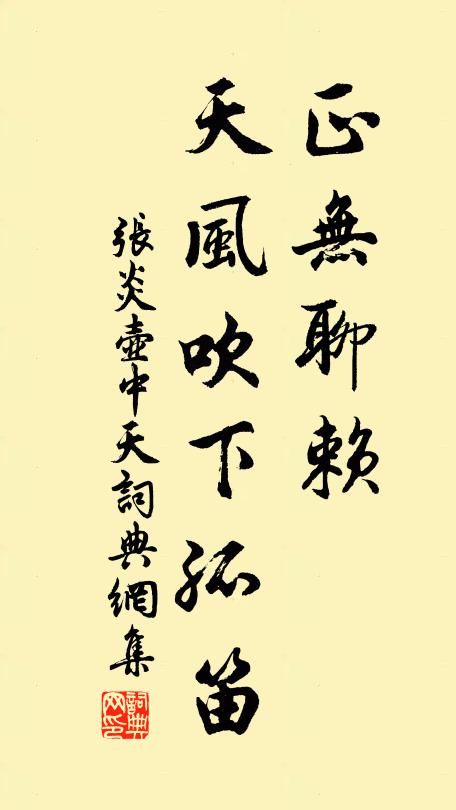 正無聊賴
天風吹下孤笛
張炎壺中天詞典網集
詞典網印